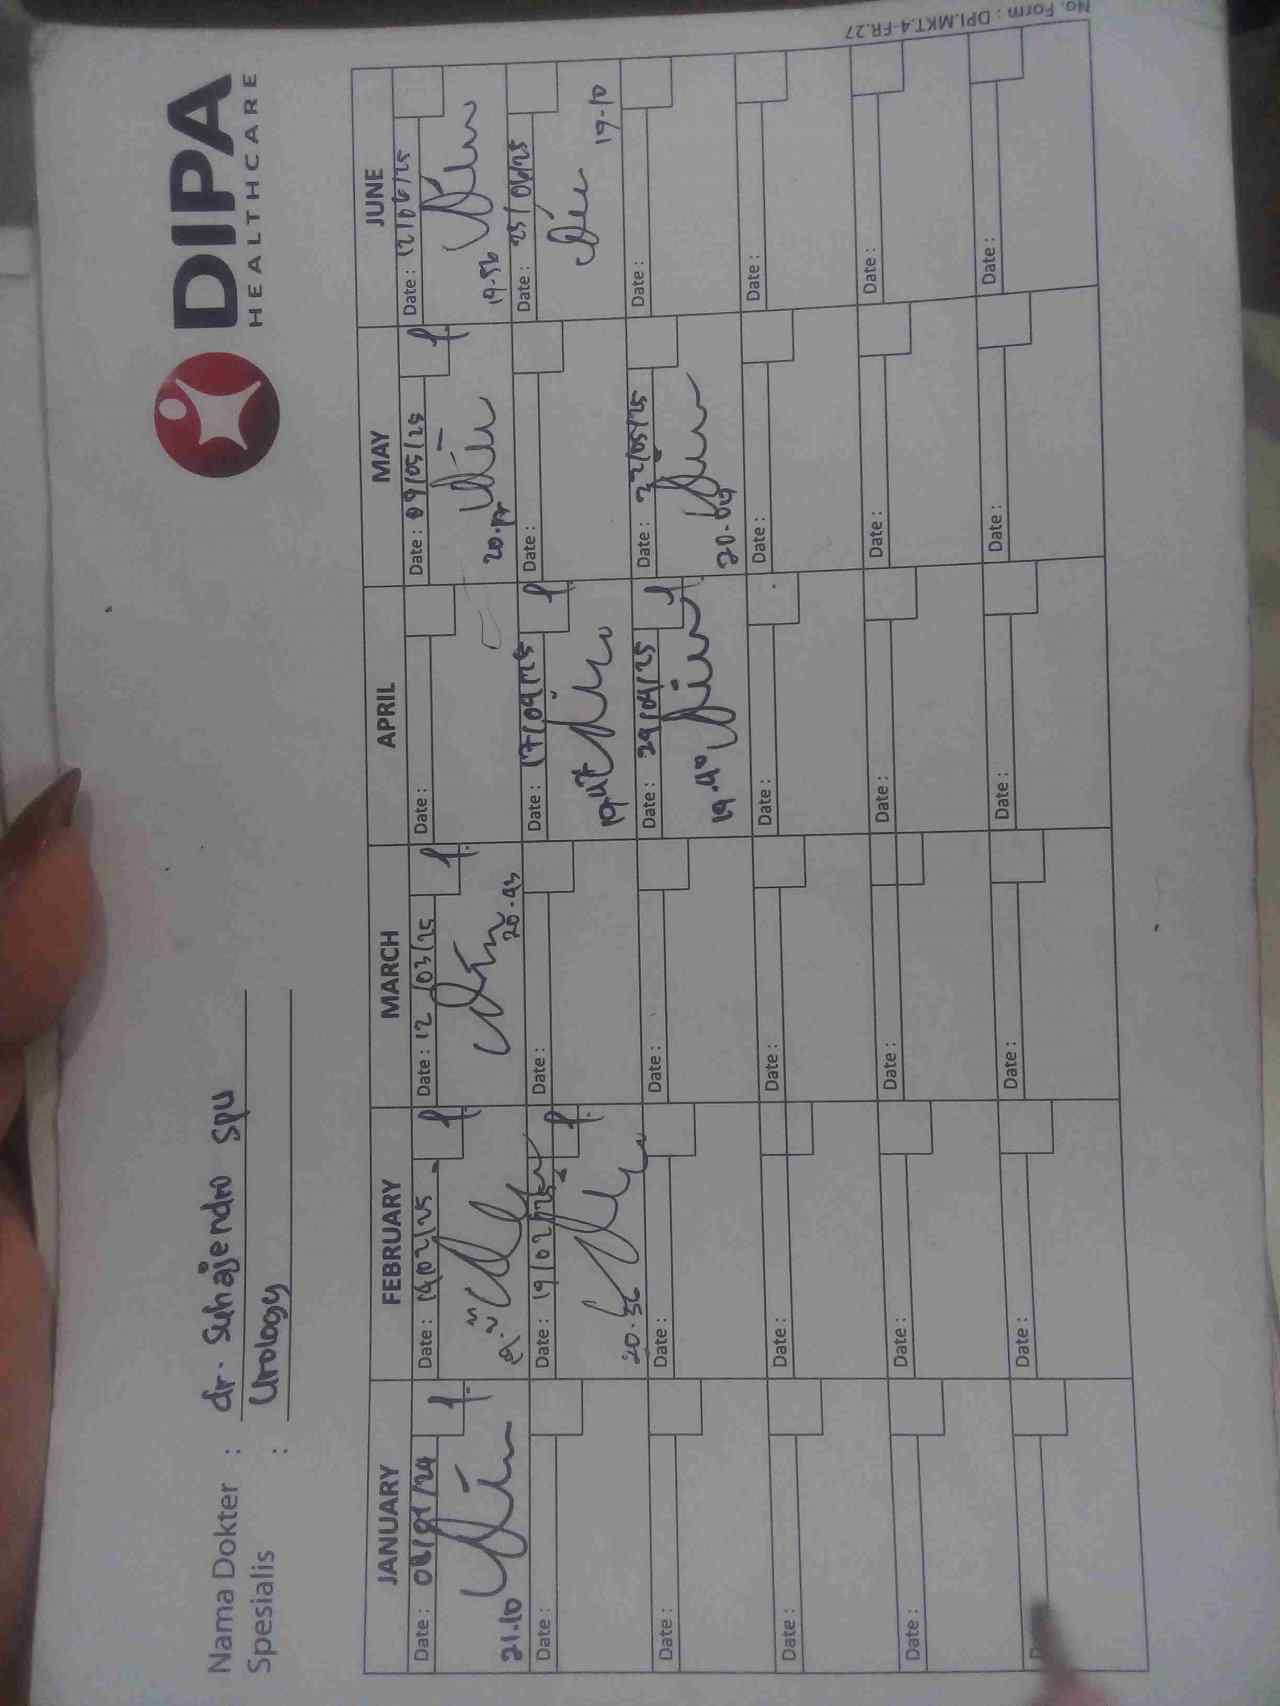 DIPA
HEALTHCARE
Nama Dokter : dr. Suhajendro SpU
Spesialis : Urology
JANUARY FEBRUARY MARCH APRIL MAY JUNE
Date : Date : 14/02/25 Date : 12/03/25 Date : Date : 09/05/25 Date : 12/06/25
21.10 20.43 19.56
Date : Date : 19/02/25 Date : Date : 17/04/25 Date : Date : 25/06/25
20.36 19.47 19-10
Date : Date : Date : Date : 29/04/25 Date : 22/05/25 Date :
19.40 20.04
Date : Date : Date : Date : Date : Date :
Date : Date : Date : Date : Date : Date :
Date : Date : Date : Date : Date :
No. Form : DPI.MKT.4-FR.27